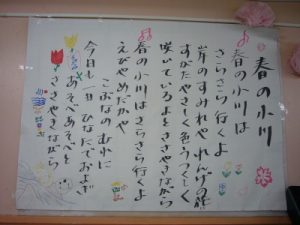 春の小川
春の小川は
さらさら行くよ
岸のすみれや れんげの花
すがたやさしく 色うつくしく
咲いているよと ささやきながら
春の小川は さらさら行くよ
えびやめだかや
こぶなのむれに
今日も一日 ひなたでおよぎ
あそべあそべと
ささやきながら